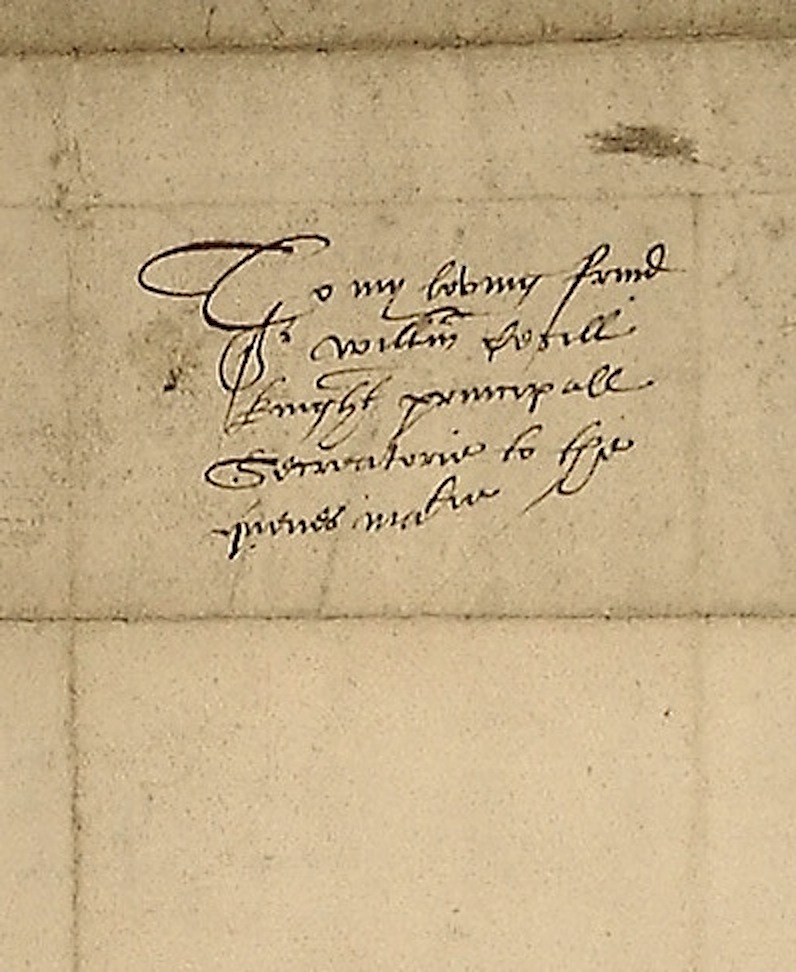 To my loving frind
Sr Willm̃ Cesill
knight principall
Secreatorie to the
quenes matie